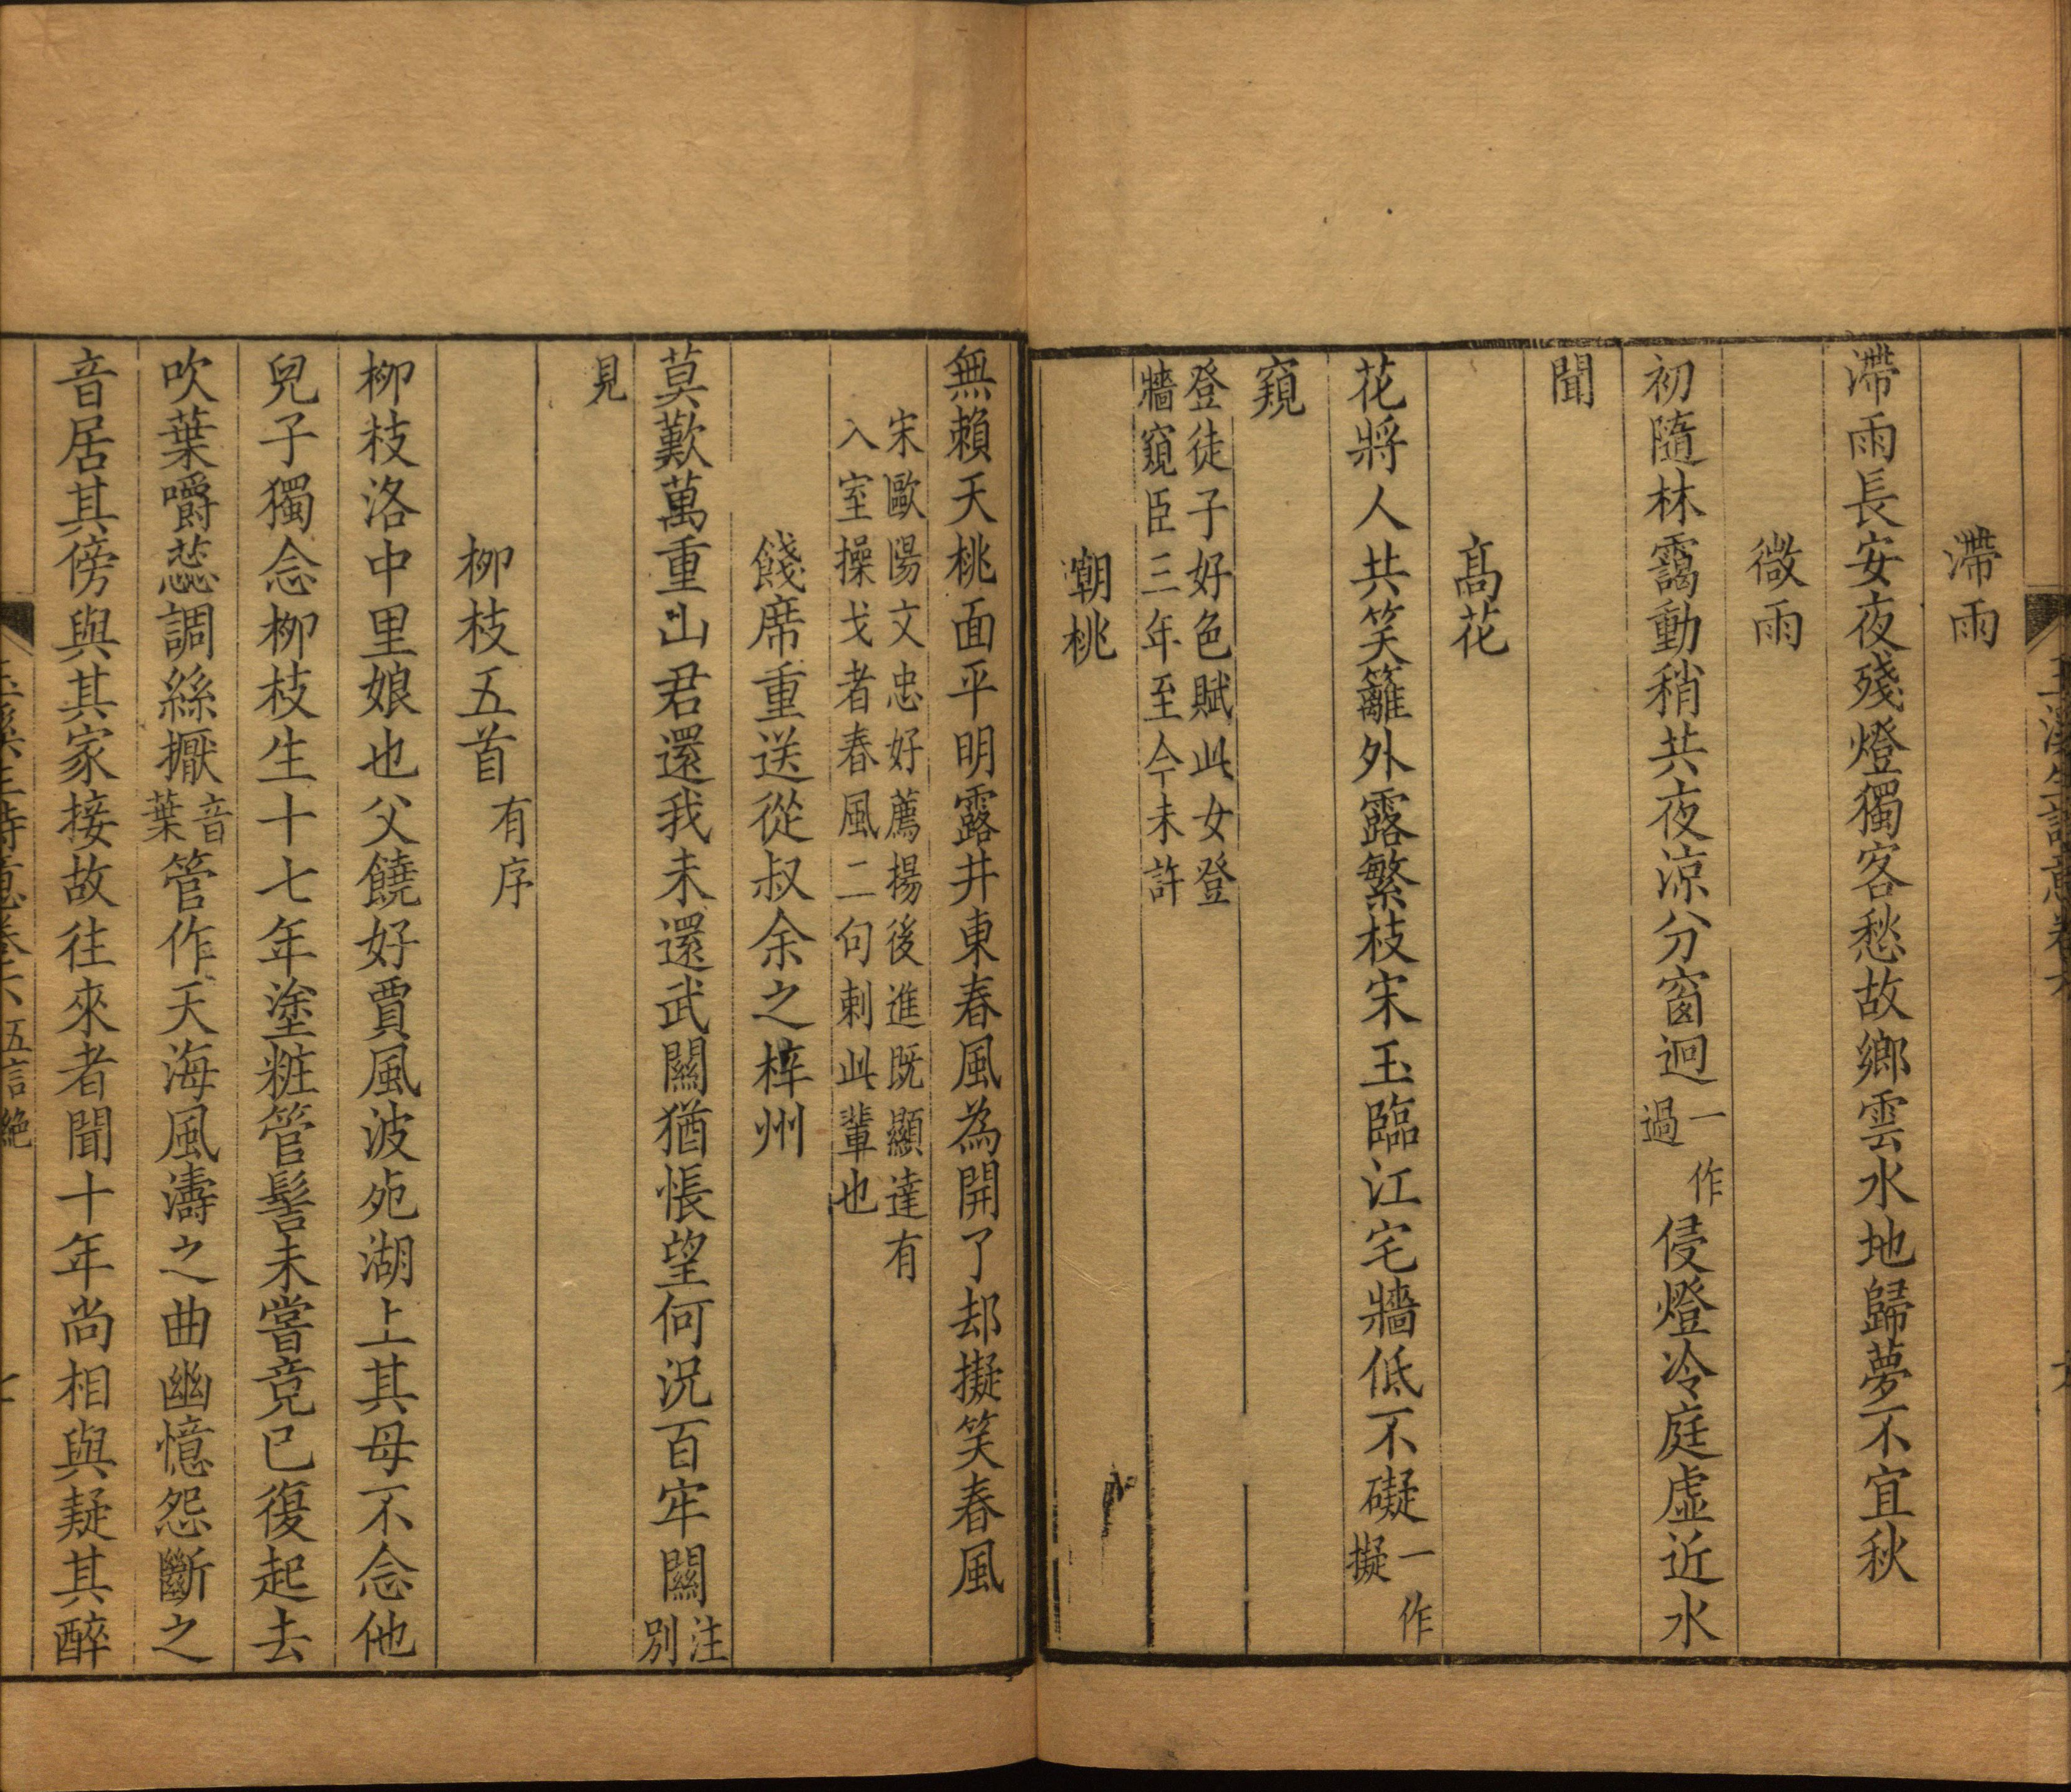 滯雨
滯雨長安夜殘燈獨客愁故鄉雲水地歸夢不宜秋
微雨
初隨林靄動稍共夜涼分窗迥一作過侵燈冷庭虛近水
聞
高花
花將人共笑籬外露繁枝宋玉臨江宅牆低不礙一作擬
窺
登徒子好色賦此女登
牆窺臣三年至今未許
嘲桃
無賴夭桃面平明露井東春風為開了却擬笑春風
宋歐陽文忠好薦揚後進既顯達有
入室操戈者春風二句刺此輩也
餞席重送從叔余之梓州
莫歎萬重山君還我未還武關猶悵望何況百牢關注別
見
柳枝五首有序
柳枝洛中里娘也父饒好賈風波死湖上其母不念他
兒子獨念柳枝生十七年塗粧管髻未嘗竟已復起去
吹葉嚼蕊調絲擫音葉管作天海風濤之曲幽憶怨斷之
音居其傍與其家接故往來者聞十年尚相與疑其醉